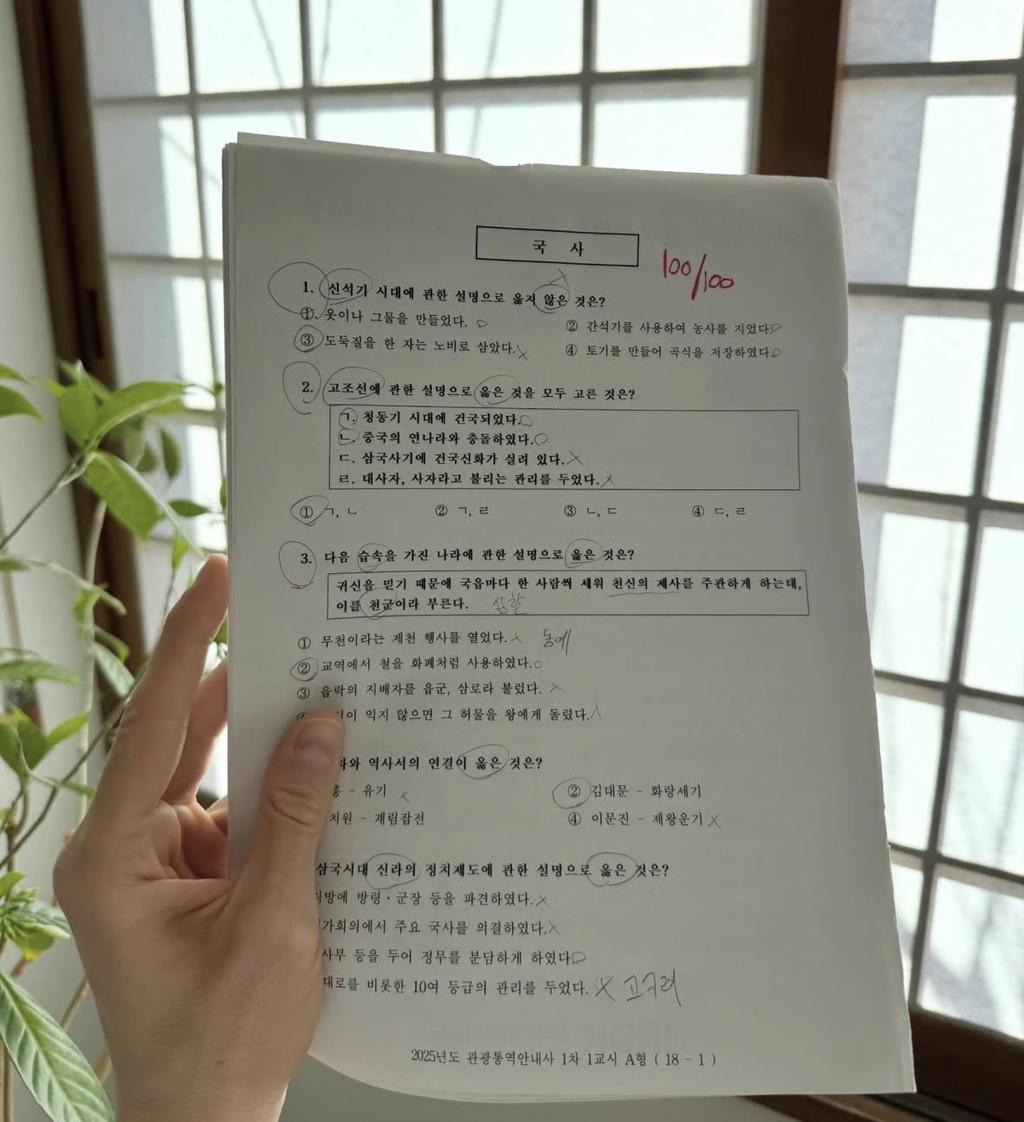 국 사
100/100
1. 신석기 시대에 관한 설명으로 옳지 않은 것은?
① 옷이나 그물을 만들었다.
② 간석기를 사용하여 농사를 지었다.
③ 도둑질을 한 자는 노비로 삼았다.
④ 토기를 만들어 곡식을 저장하였다.
2. 고조선에 관한 설명으로 옳은 것을 모두 고른 것은?
ㄱ. 청동기 시대에 건국되었다.
ㄴ. 중국의 연나라와 충돌하였다.
ㄷ. 삼국사기에 건국신화가 실려 있다.
ㄹ. 대사자, 사자라고 불리는 관리를 두었다.
① ㄱ, ㄴ ② ㄱ, ㄹ ③ ㄴ, ㄷ ④ ㄷ, ㄹ
3. 다음 습속을 가진 나라에 관한 설명으로 옳은 것은?
귀신을 믿기 때문에 국읍마다 한 사람씩 세워 천신의 제사를 주관하게 하는데,
이를 천군이라 부른다. 삼한
① 무천이라는 제천 행사를 열었다. 동예
② 교역에서 철을 화폐처럼 사용하였다.
③ 읍락의 지배자를 읍군, 삼로라 불렀다.
이 익지 않으면 그 허물을 왕에게 돌렸다.
와 역사서의 연결이 옳은 것은?
홍 - 유기
② 김대문 - 화랑세기
치원 - 계림잡전
④ 이문진 - 제왕운기
삼국시대 신라의 정치제도에 관한 설명으로 옳은 것은?
방에 방령·군장 등을 파견하였다.
가회의에서 주요 국사를 의결하였다.
사부 등을 두어 정무를 분담하게 하였다
대로를 비롯한 10여 등급의 관리를 두었다. 고구려
2025년도 관광통역안내사 1차 1교시 A형 ( 18 - 1 )